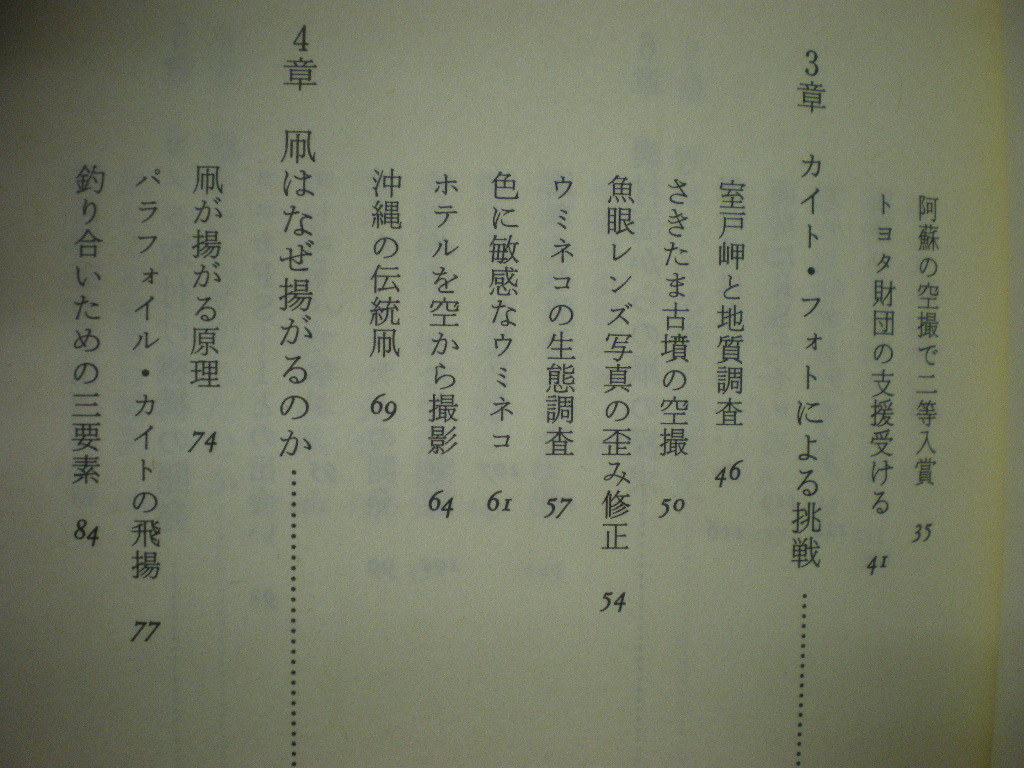 阿蘇の空撮で二等入賞 35
トヨタ財団の支援受ける 41
3章 カイト・フォトによる挑戦……………
室戸岬と地質調査 46
さきたま古墳の空撮 50
魚眼レンズ写真の歪み修正 54
ウミネコの生態調査 57
色に敏感なウミネコ 61
ホテルを空から撮影 64
沖縄の伝統凧 69
4章 凧はなぜ揚がるのか……………
凧が揚がる原理 74
パラフォイル・カイトの飛揚 77
釣り合いための三要素 84